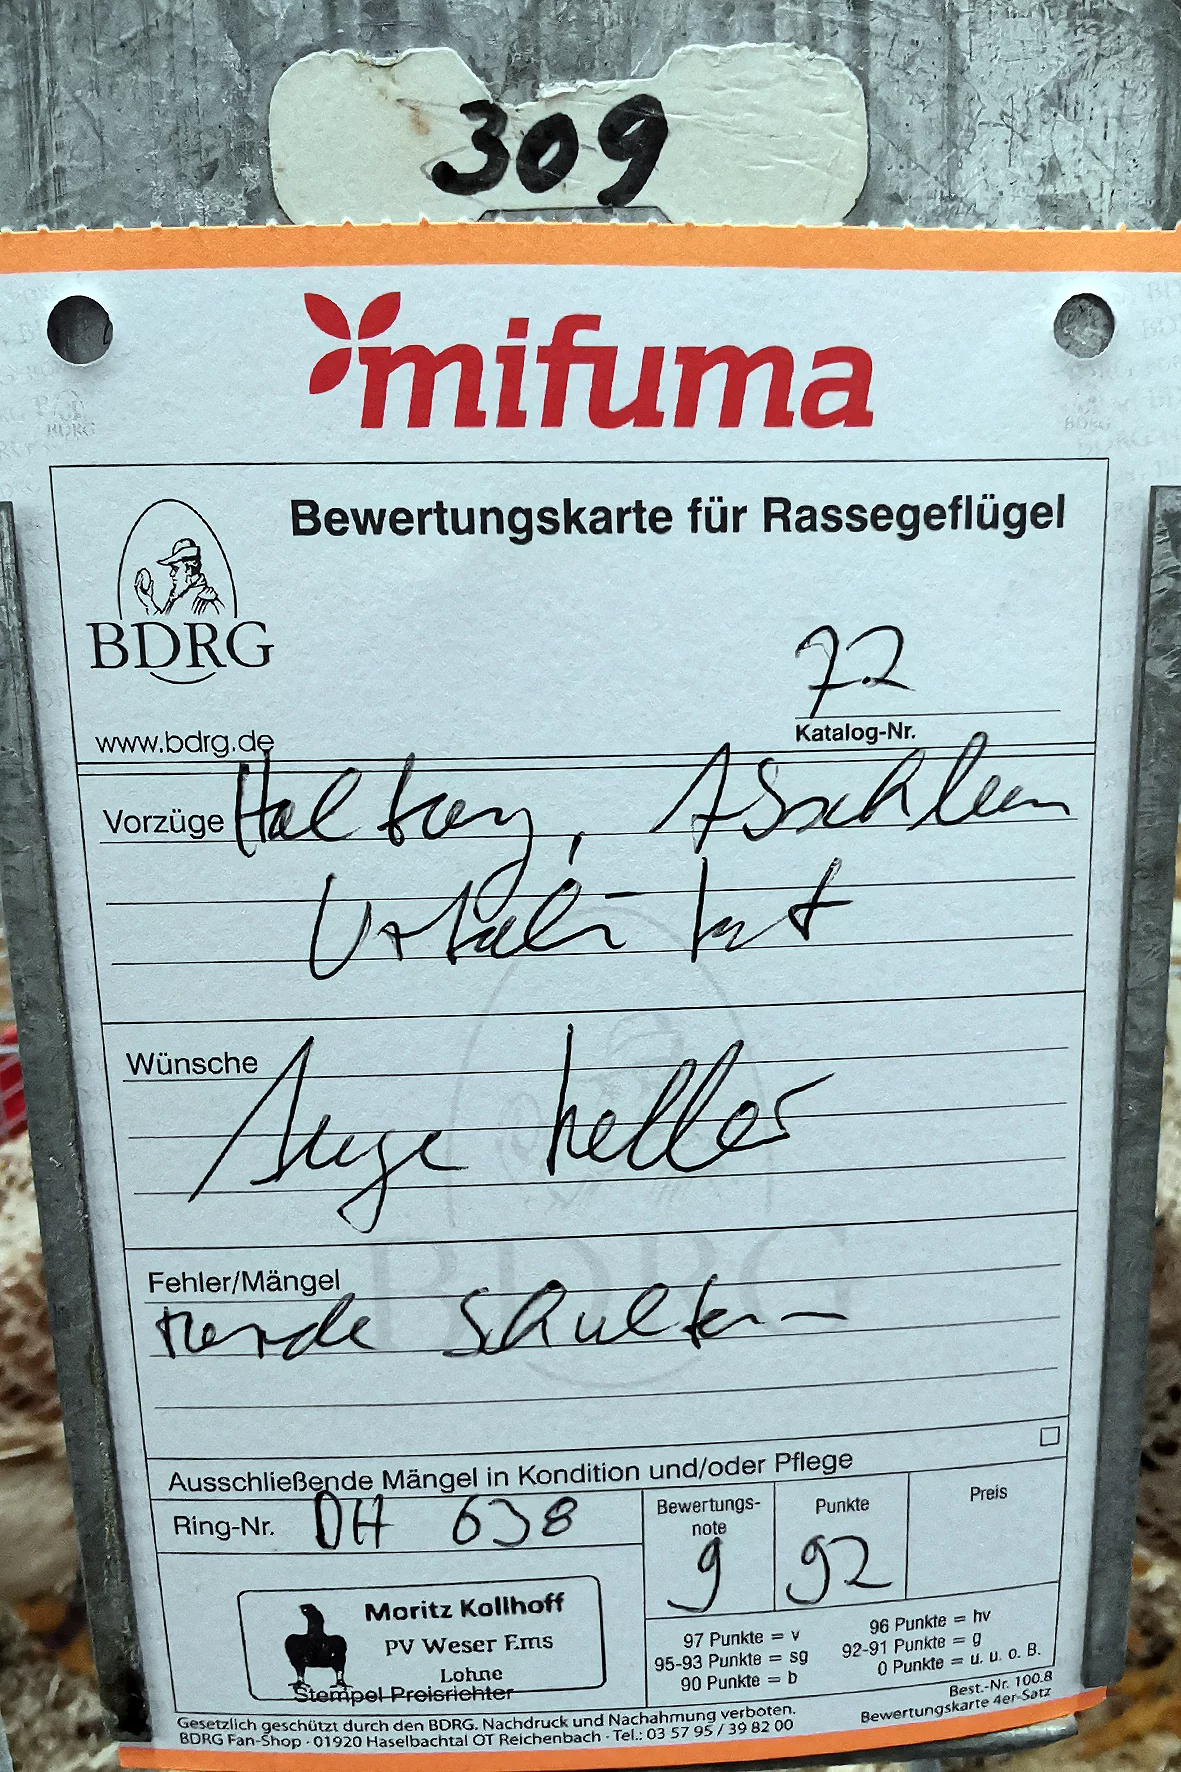 309
mifuma
Bewertungskarte für Rassegeflügel
BDRG
72
www.bdrg.de
Katalog-Nr.
Vorzüge Haltung, Abschluss
Vitalität
Wünsche
Auge heller
Fehler/Mängel
Schultern
Ausschließende Mängel in Kondition und/oder Pflege
Ring-Nr. DH 638
Bewertungs-
note
9
Punkte
92
Preis
Moritz Kollhoff
PV Weser Ems
Lohne
Stempel Preisrichter
97 Punkte = v
95-93 Punkte = sg
90 Punkte = b
96 Punkte = hv
92-91 Punkte = g
0 Punkte = u. u. o. B.
Gesetzlich geschützt durch den BDRG. Nachdruck und Nachahmung verboten.
BDRG Fan-Shop · 01920 Haselbachtal OT Reichenbach · Tel.: 03 57 95 / 39 82 00
Best.-Nr. 100.8
Bewertungskarte 4er-Satz